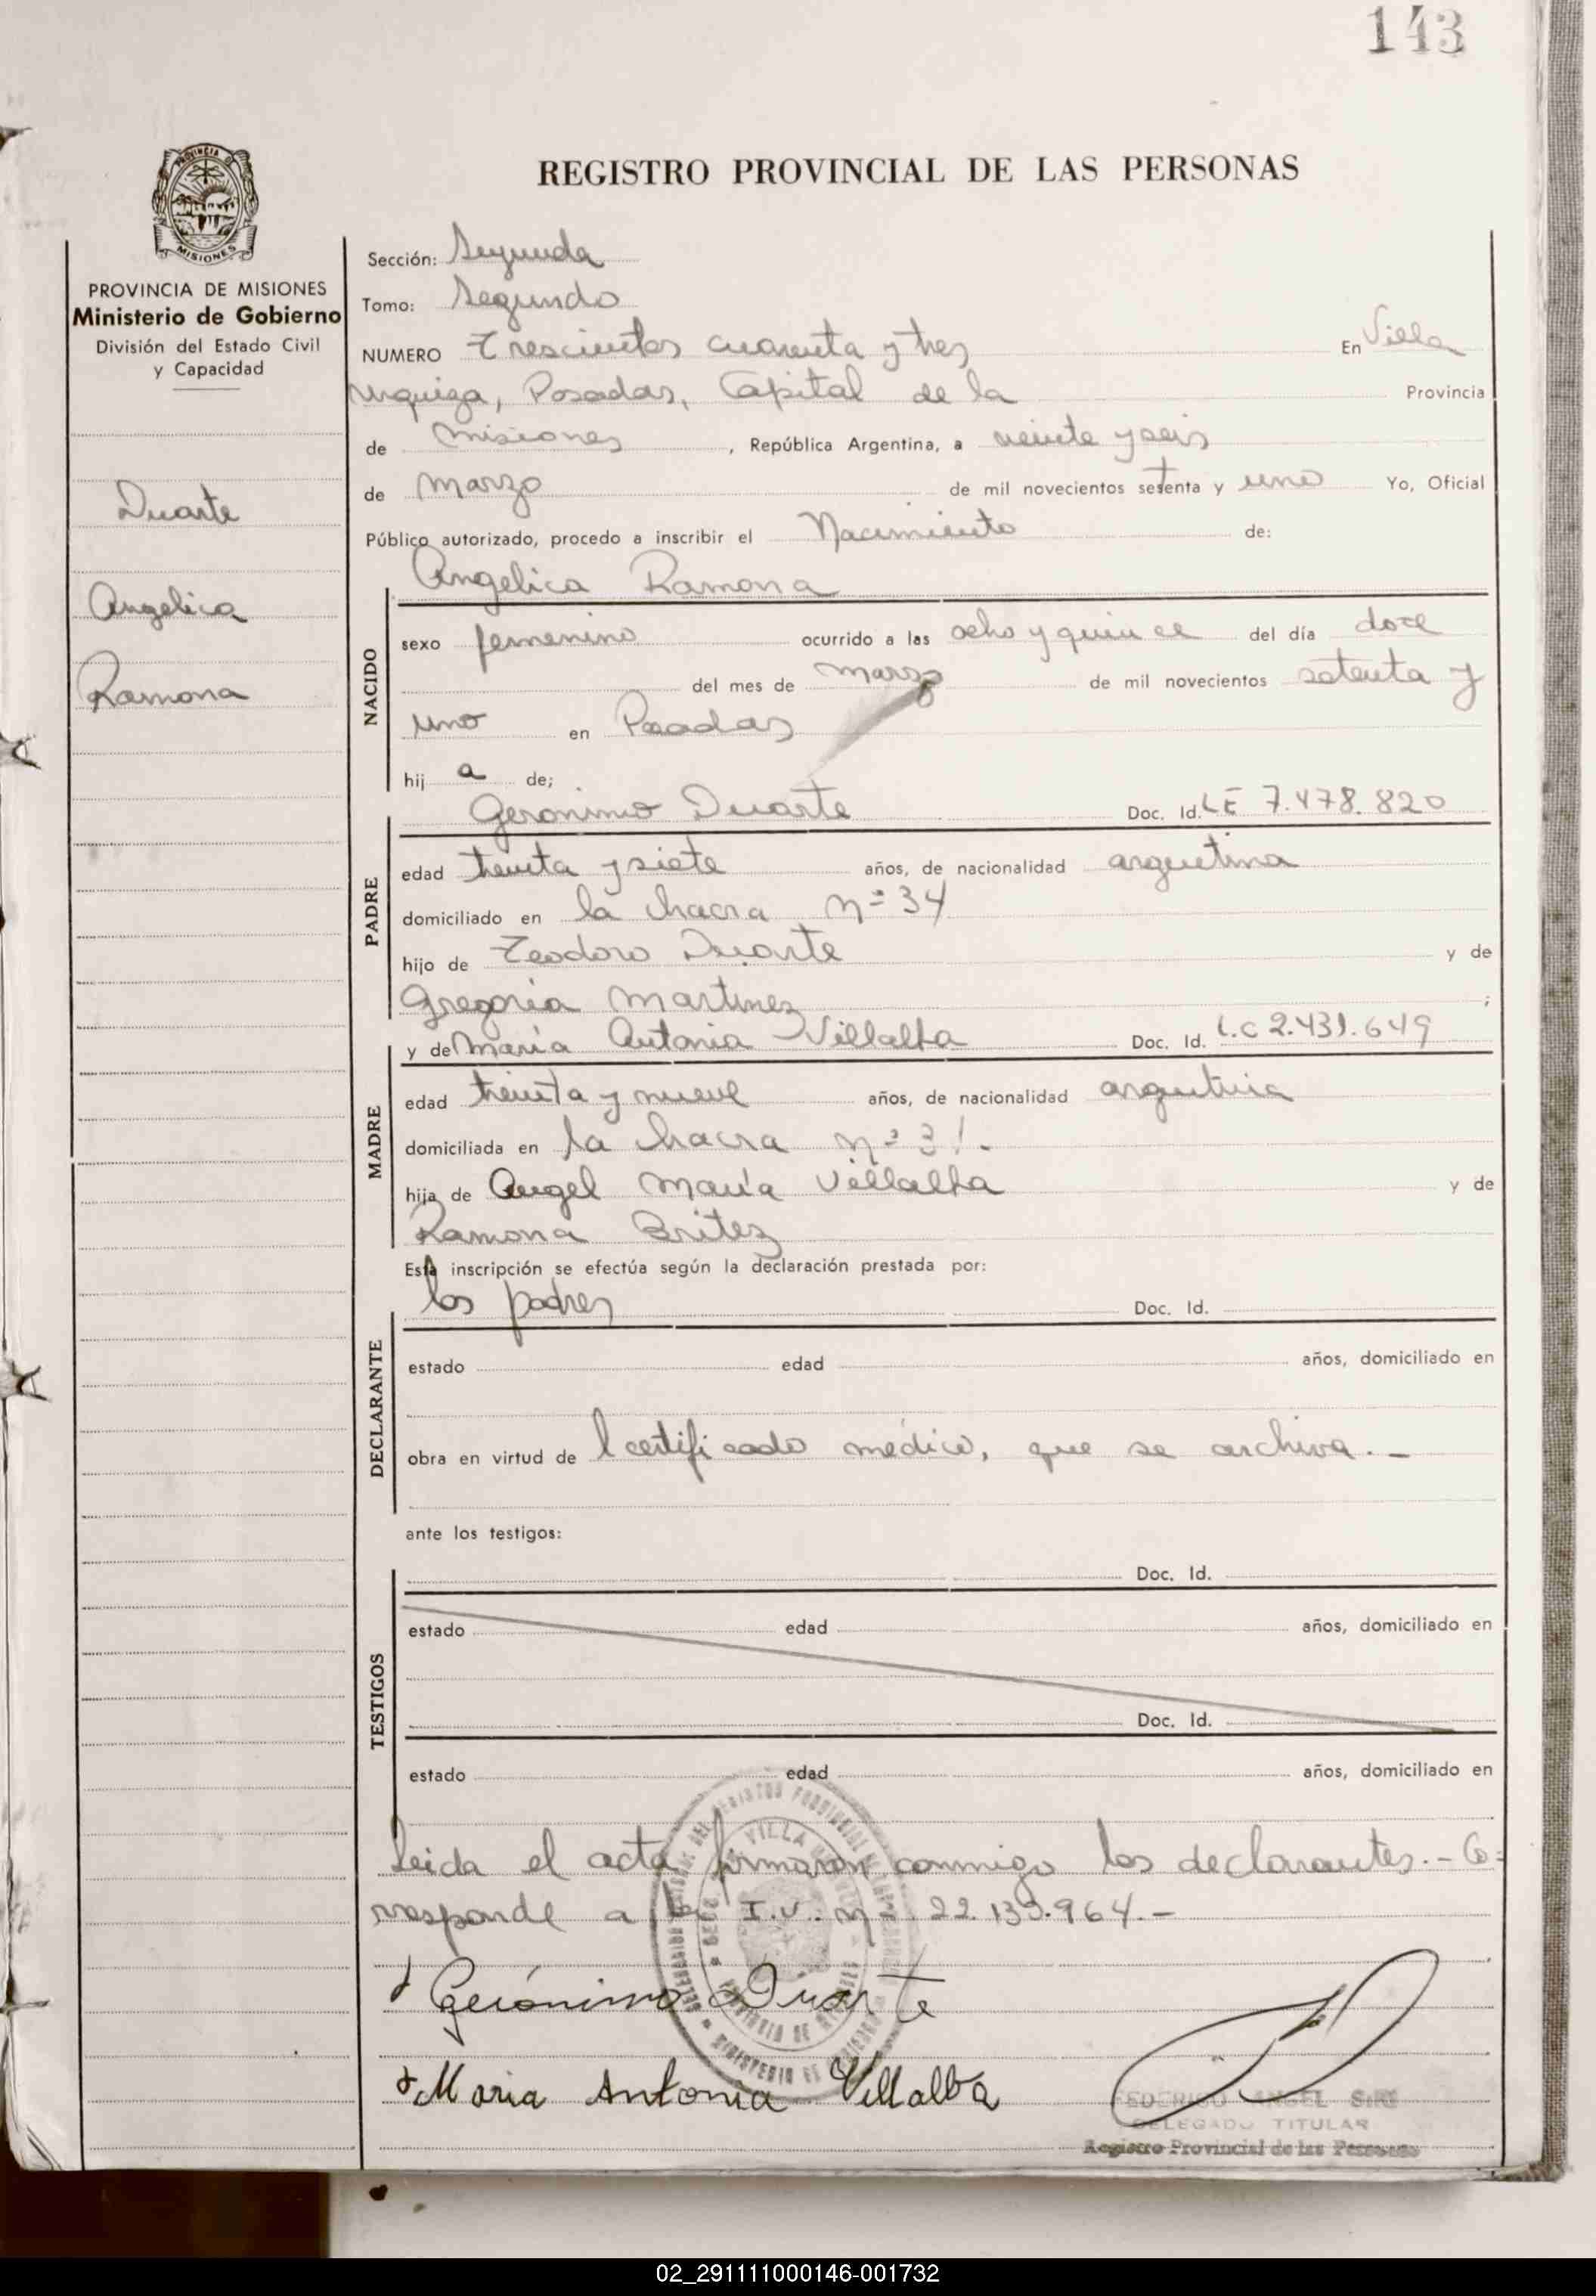 143
PROVINCIA DE
MISIONES
REGISTRO PROVINCIAL DE LAS PERSONAS
PROVINCIA DE MISIONES
Ministerio de Gobierno
División del Estado Civil
y Capacidad
Duarte
Angelica
Ramona
Sección: Segunda
Tomo: Segundo
NUMERO Trescientos cuarenta y tres En Villa
Urquiza, Posadas, Capital de la Provincia
de Misiones, República Argentina, a veinte y seis
de Marzo de mil novecientos setenta y uno Yo, Oficial
Público autorizado, procedo a inscribir el Nacimiento de:
Angelica Ramona
NACIDO
sexo femenino ocurrido a las ocho y quince del día doce
del mes de marzo de mil novecientos setenta y
uno en Posadas
hij a de;
Geronimo Duarte Doc. Id. LE 7.478.820
PADRE
edad treinta y siete años, de nacionalidad argentina
domiciliado en la chacra nº 34
hijo de Teodoro Duarte y de
Gregoria Martinez ;
y de María Antonia Villalba Doc. Id. L.C 2.431.649
MADRE
edad treinta y nueve años, de nacionalidad argentina
domiciliada en la chacra nº
hija de Angel María Villalba y de
Ramona Britez
Esta inscripción se efectúa según la declaración prestada por:
los padres Doc. Id.
DECLARANTE
estado edad años, domiciliado en
obra en virtud de l certificado médico, que se archiva.-
ante los testigos:
Doc. Id.
TESTIGOS
estado edad años, domiciliado en
Doc. Id.
estado edad años, domiciliado en
Leida el acta firmaron conmigo los declarantes.- Co=
rresponde a la I.U. nº 22.139.964.-
Gerónimo Duarte
Maria Antonia Villalba
FEDERICO ANGEL
DELEGADO TITULAR
Registro Provincial de las Personas
02_291111000146-001732